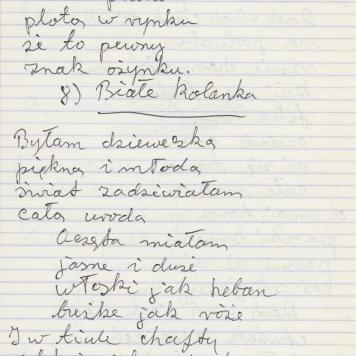 plotą w rynku
że to pewny
znak ożynku.
8) Białe kolanka
Byłam dzieweczką
piękną i młodą
świat zadziwiałam
całą urodą
Oczęta miałam
jasne i duże
włoski jak heban
buźkę jak róże
I w tiule chafty